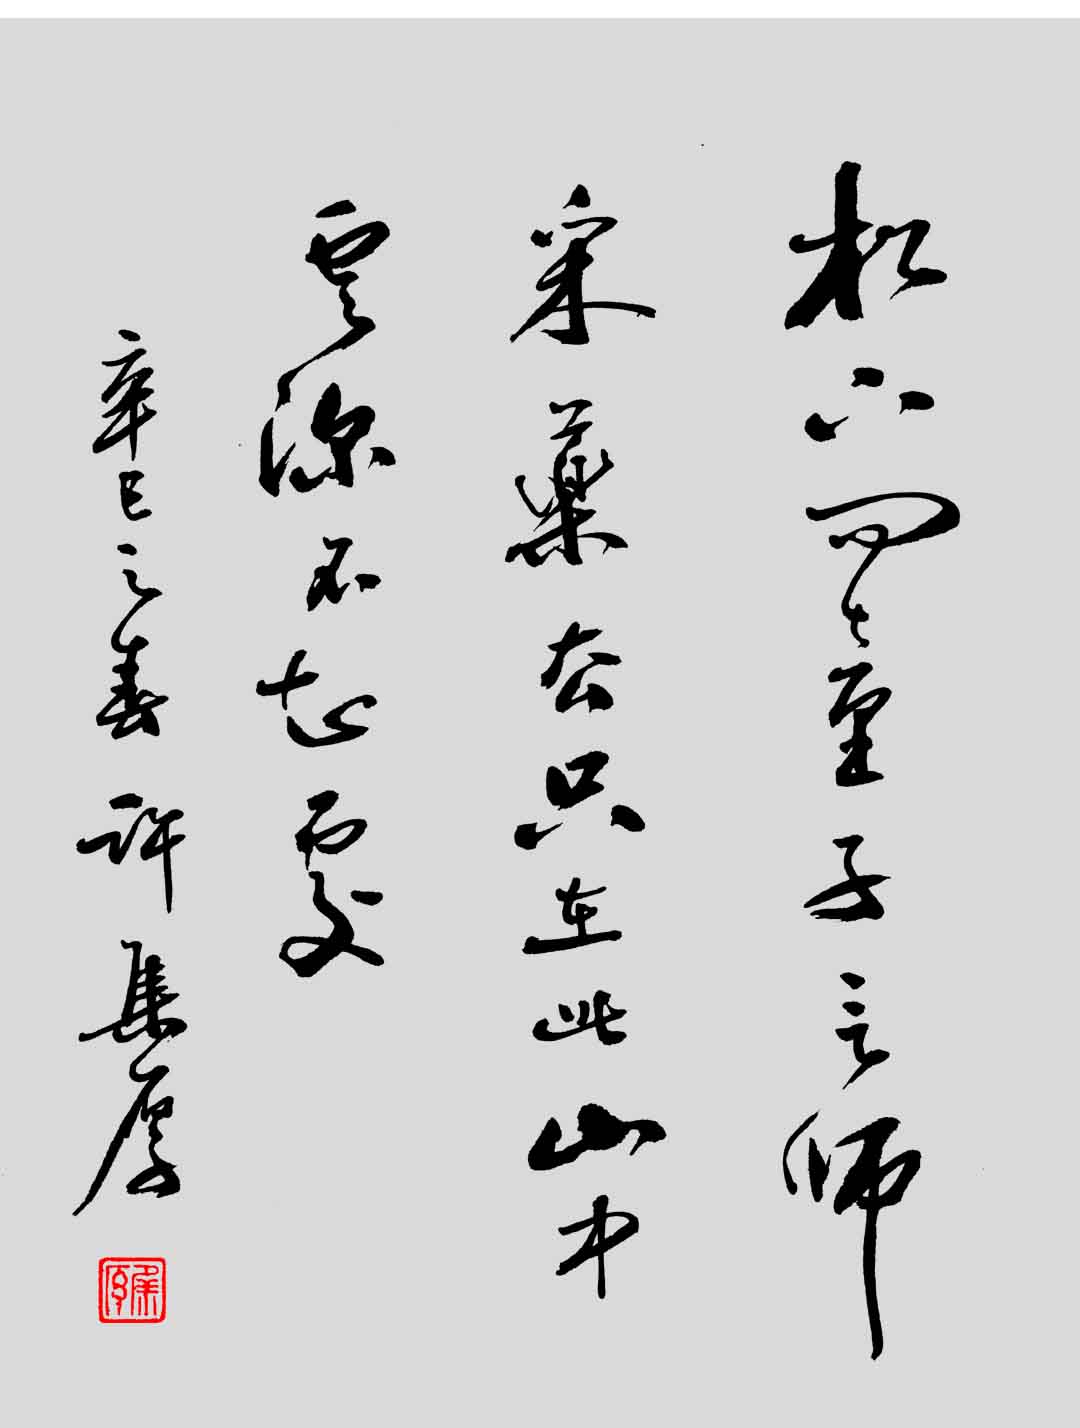 松下问童子言师
采药去只在此山中
云深不知处
辛巳之春 许集厚
集厚